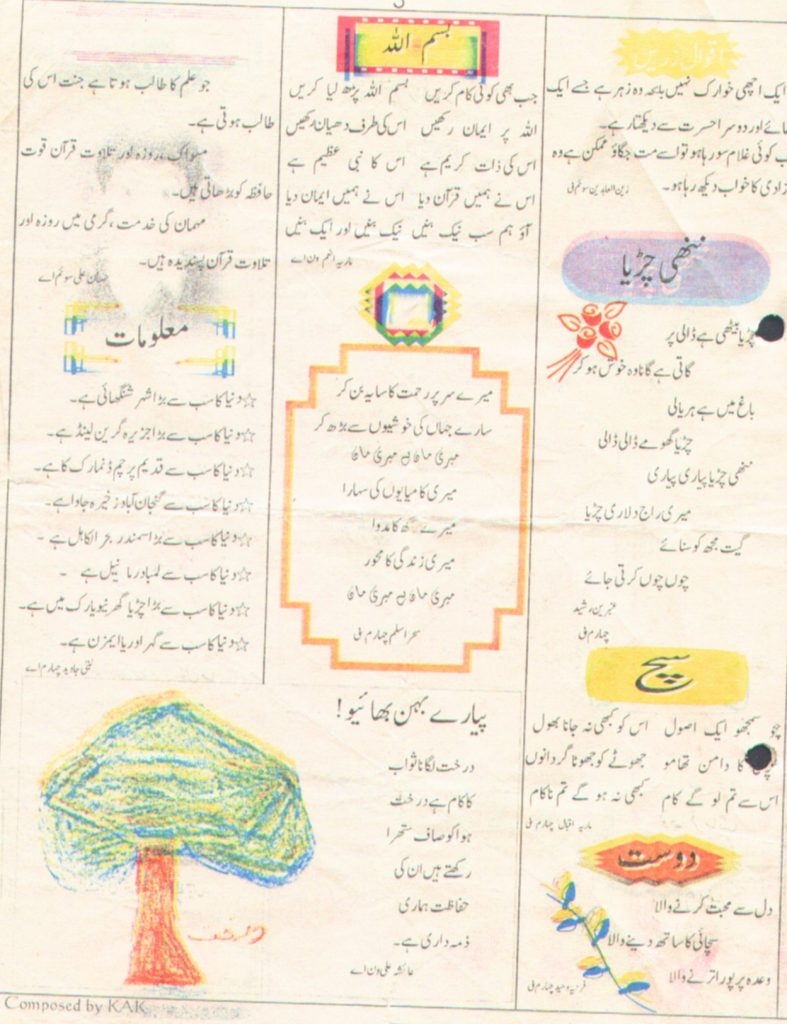 اقوال زریں
ایک اچھی خوارک نہیں بلکہ وہ زہر ہے جسے ایک
اور دوسرا حسرت سے دیکھتا ہے۔
کوئی غلام سو رہا ہو تو اسے مت جگاؤ ممکن ہے وہ
آزادی کا خواب دیکھ رہا ہو۔
زین العابدین سوئم بی
ننھی چڑیا
چڑیا بیٹھی ہے ڈالی پر
گاتی ہے گانا وہ خوش ہو کر
باغ میں ہے ہریالی
چڑیا گھومے ڈالی ڈالی
ننھی چڑیا پیاری پیاری
میری راج دلاری چڑیا
گیت مجھ کو سنائے
چوں چوں کرتی جائے
عنبرین رشید
چہارم بی
سچ
سمجھو ایک اصول اس کو کبھی نہ جانا بھول
کا دامن تھامو جھوٹے کو جھوٹا گردانوں
اس سے تم لو گے کام کبھی نہ ہو گے تم ناکام
ماریہ اقبال چہارم بی
دوست
دل سے محبت کرنے والا
سچائی کا ساتھ دینے والا
وعدہ پر پورا اترنے والا
وحید چہارم بی
بسم اللہ
جب بھی کوئی کام کریں بسم اللہ پڑھ لیا کریں
اللہ پر ایمان رکھیں اس کی طرف دھیان رکھیں
اس کی ذات کریم ہے اس کا نبی عظیم ہے
اس نے ہمیں قرآن دیا اس نے ہمیں ایمان دیا
آؤ ہم سب نیک بنیں نیک بنیں اور ایک بنیں
ماریہ انجم ون اے
میرے سر پر رحمت کا سایہ بن کر
سارے جہاں کی خوشیوں سے بڑھ کر
میری ماں ہے میری ماں
میری کامیابوں کی سہارا
میرے کا مدوا
میری زندگی کا محور
میری ماں ہے میری ماں
سحر اسلم چہارم بی
جو علم کا طالب ہوتا ہے جنت اس کی
طالب ہوتی ہے۔
مسواک، روزہ اور تلاوت قرآن قوت
حافظہ کو بڑھاتی ہیں۔
مہمان کی خدمت، گرمی میں روزہ اور
تلاوت قرآن پسندیدہ ہیں۔
حسان علی سوئم اے
معلومات
☆دنیا کا سب سے بڑا شہر شنگھائی ہے۔
☆دنیا کا سب سے بڑا جزیرہ گرین لینڈ ہے۔
☆دنیا کا سب سے قدیم پرچم ڈنمارک کا ہے۔
☆دنیا کا سب سے گنجان آباد زخیرہ جاوا ہے۔
☆دنیا کا سب سے بڑا سمندر بحر الکاہل ہے۔
☆دنیا کا سب سے لمبا دریا نیل ہے۔
☆دنیا کا سب سے بڑا چڑیا گھر نیویارک میں ہے۔
☆دنیا کا سب سے گہرا دریا ایمزن ہے۔
جاوید چہارم اے
پیارے بہن بھائیو!
درخت لگانا ثواب
کا کام ہے درخت
ہوا کو صاف ستھرا
رکھتے ہیں ان کی
حفاظت ہماری
ذمہ داری ہے۔
عائشہ علی ون اے
درخت
Composed by KAK